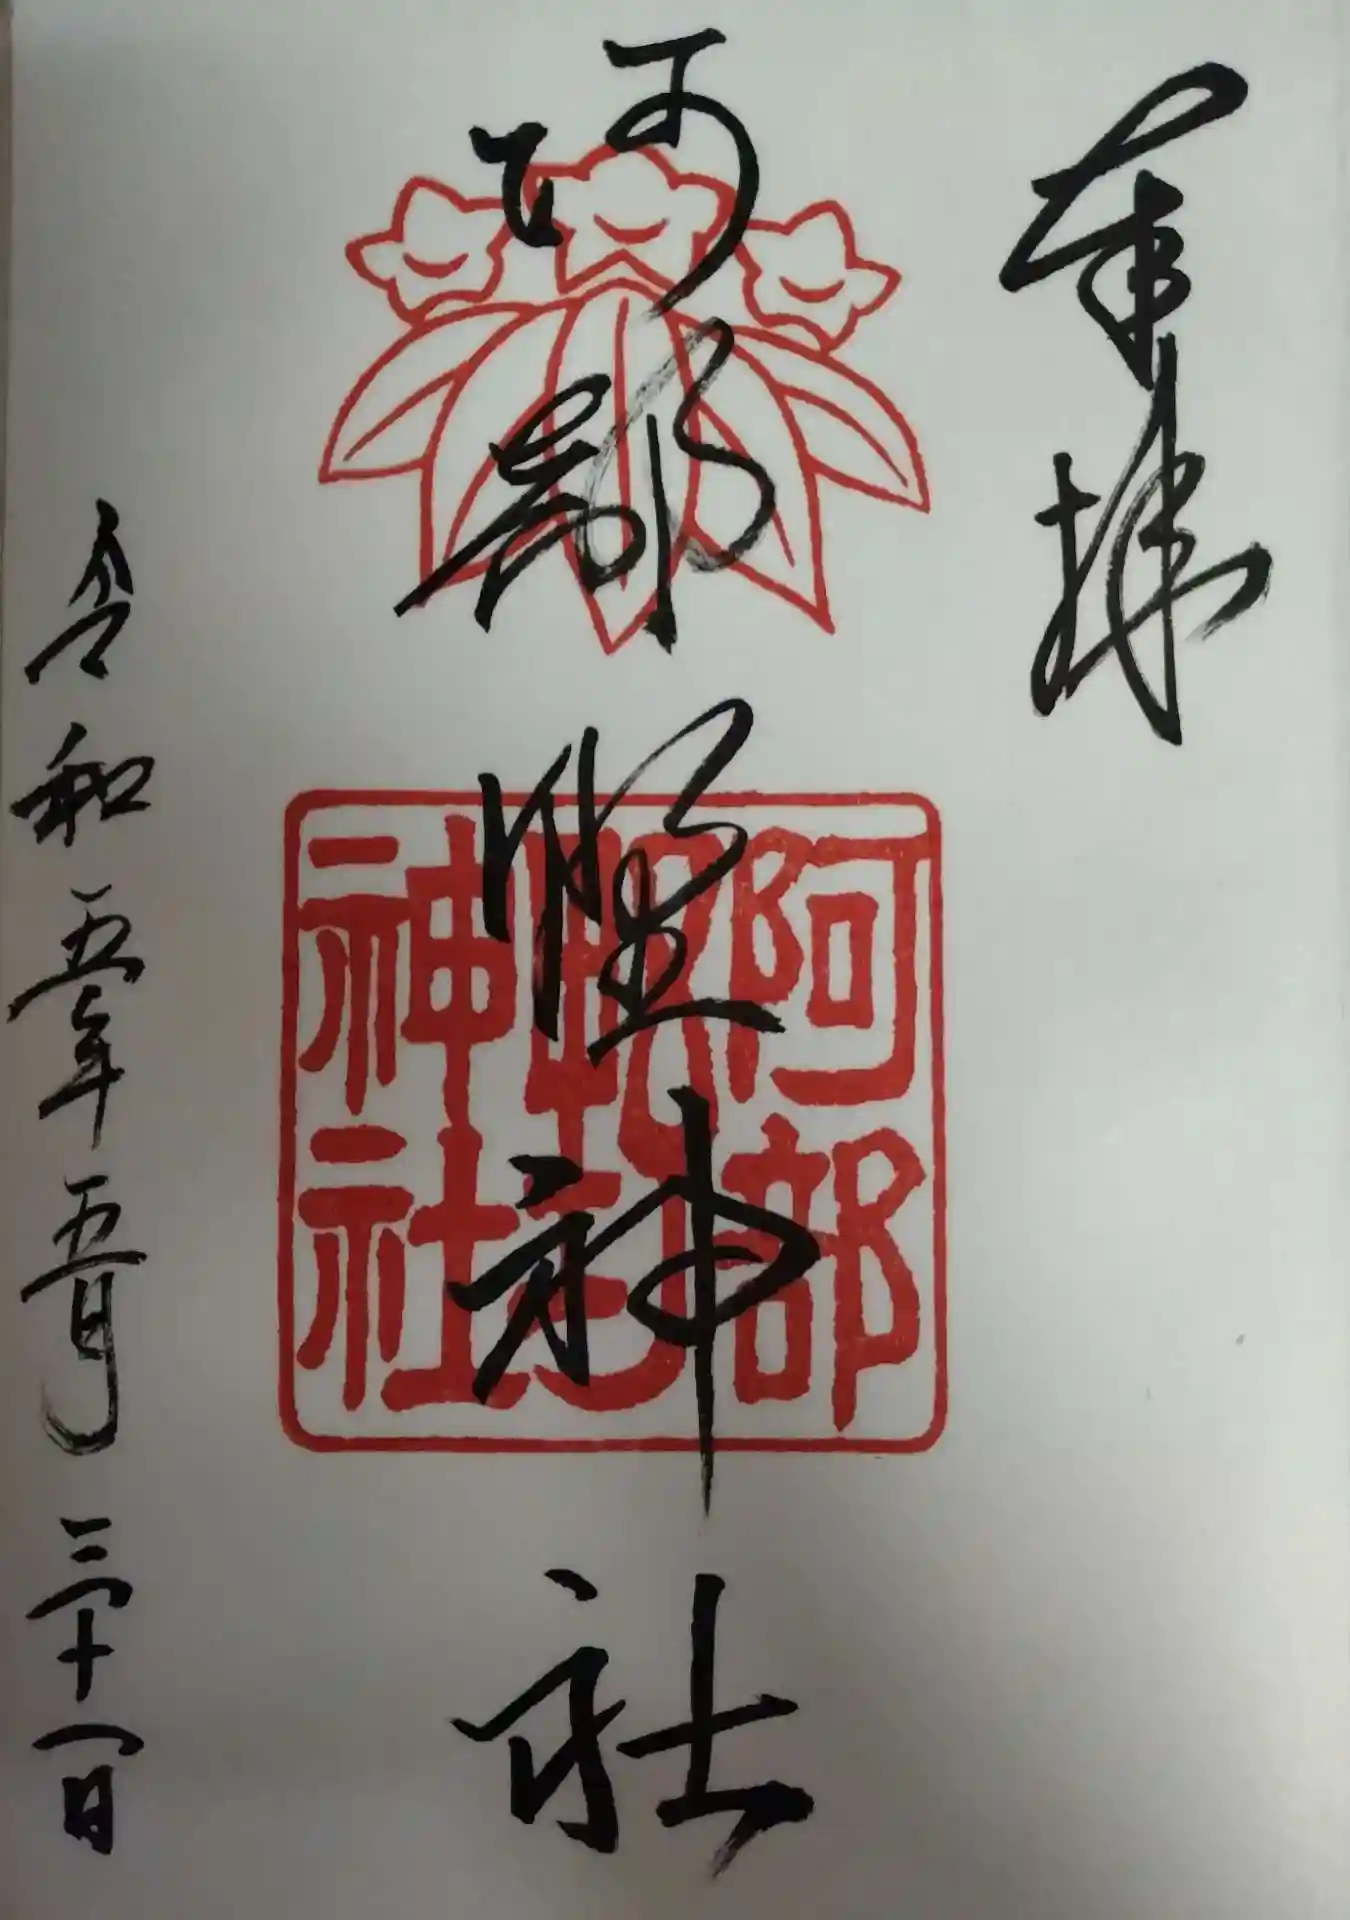 奉拝
阿部野神社
令和五年五月三十一日
阿部
野
神社